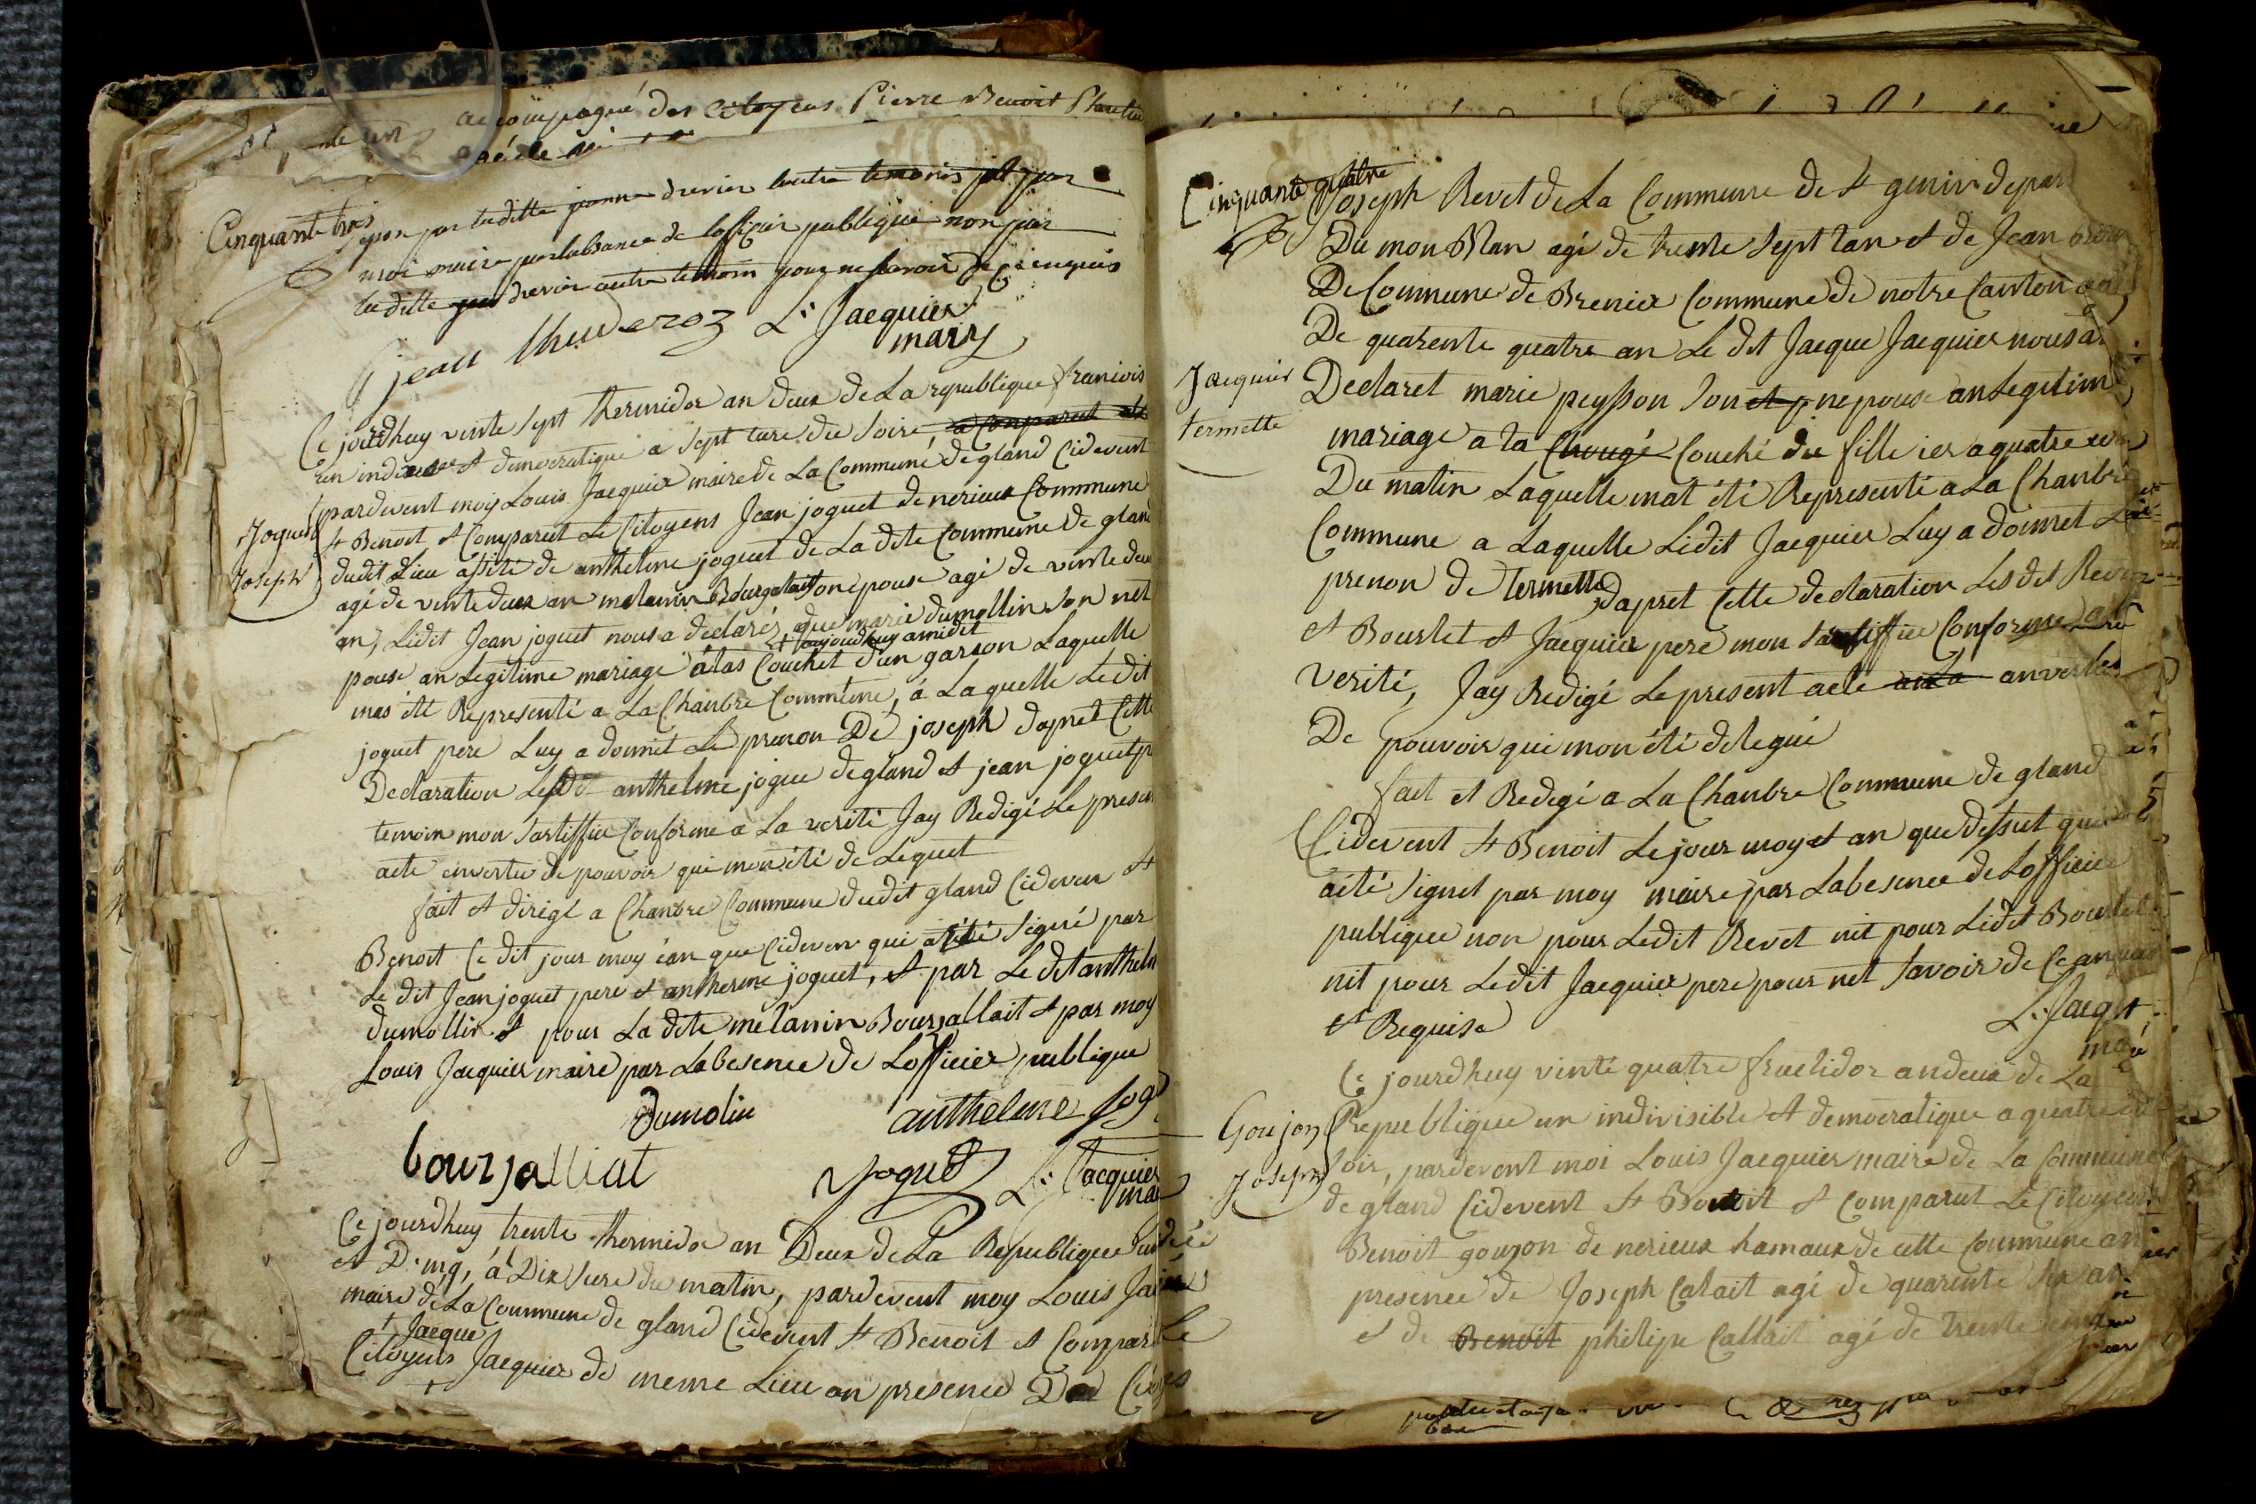 accompagné des Citoyens Pierre Benoit
Cinquante trois
par laditte jeanne drevier autre temoins
moi maire par labsance de lofficier publique non par
laditte drevier autre temoin pour ne savoir de ce enquis
jean thuderoz L: Jacquier
mairy
Ce jourdhuy vinte sept thermidor an deux de La republique francois
un indivi et democratique a sept eure du Soire a Comparut
pardevent moy Louis Jacquier maire de La Commune de gland Cidevent
St Benoit et Comparut Le Citoyens Jean joguet de nerieux Commune
Joguet
Joseph
dudit Lieu astité de anthelme joguet de La dite Commune de gland
agé de vinte deux an melanin Bourgalait son epouse agé de vinte deux
an, Ledit Jean joguet nous a declaréz que marie dumollin son net
+ aujourdhuy a midit
pouse an Legitime mariage a las Couchet d'un garson Laquelle
mas été Representé a La Chanbre Commune, á Laquelle Ledit
joguet pere Luy a donnét Le prenon De joseph dapret Cette
Declaration Lesdt anthelme jogue de gland et jean joguet
temoin mon Sartiffie Conforme a La verité Jay Redigé Le presen
acte envertu de pouvoir qui mon été de Leguet
fait et dirigé a Chanbre Commune dudit gland Cideven St
Benoit Ce dit jour moy éan que Cideven qui a été Signé par
Le dit Jean joguet pere et antherme joguet, et par Le dit anthelm
dumollin et pour La dite melanin Bourjallait et par moy
Louis Jacquier maire par Labesence de Lofficier publique
Dumolin anthelme jog
bourjalliat Joguet L: Jacquier
mai
Ce jourdhuy trente thermidor an Deux de La Republique
et D. mq, á Dix heure du matin, pardevent moy Louis
maire de La Commune de gland Cidevent St Benoit et Compar Le
+ Jacque
Citoyens Jacquier de meme Lieu an presence
Cinquante quatre
Joseph Revet de La Commune de St genin depar
Du mon Blan agé de trente Sept lan et de Jean
De Commune de Brenier Commune de notre Canton
De quarente quatre an Le dit Jacque Jacquier nous a
Jacquier
termette
Declaret marie peysson son nepouse an Legitim
mariage a la Chougé Couché de fille ier a quatre
Du matin Laquelle mat été Representé a La Chanbre
Commune a Laquelle Ledit Jacquier Luy a donnet
prenon de termette dapret Cette declaration Lesdit Revet
et Bourlet et Jacquier pere mon Sartiffiee Conforme a
verité, Jay Redigé Le present acte anvertu
De pouvoir qui mon été delegué
fait et Redegé a La Chanbre Commune de gland
Cidevent St Benoit Le jour moy et an que dessut
aité Signet par moy maire par Labesence de Lofficie
publique non pour Ledit Revet nit pour Ledit Bourlet
nit pour Ledit Jacquier pere pour net Savoir de Ce
et Requise
L: Jacq
Ce jourdhuy vinte quatre fructidor an deux de La
Goujon
Joseph
Republique un indivisible et democratique a quatre
Soir, pardevent moi Louis Jacquier maire de La Commune
de gland Cidevent St Benoit et Comparut Le Citoyen
Benoit goujon de nerieux hamaux de cette Commune an
presence de Joseph Calait agé de quarente
et de Benoit philipe Callait agé de trente